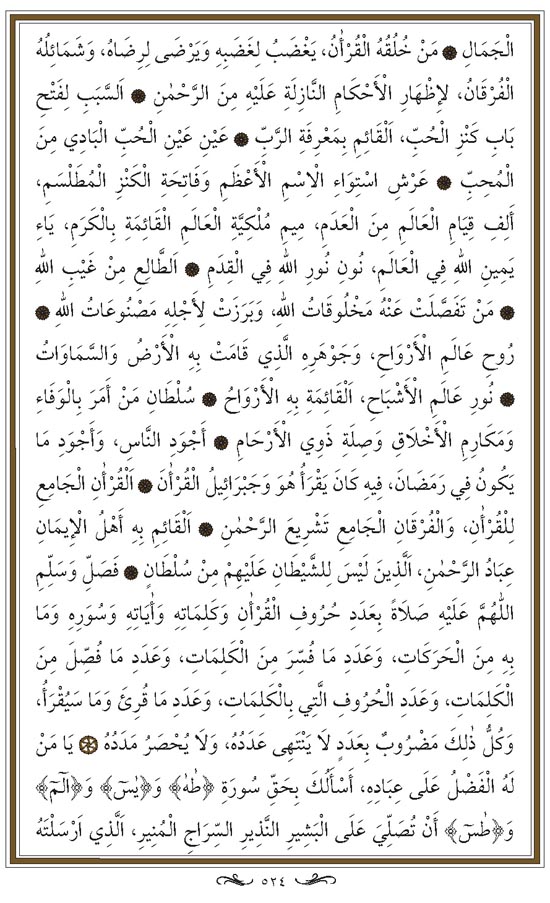 الْجَمَالِ ۞ مَنْ خُلُقُهُ الْقُرْأٰنُ، يَغْضَبُ لِغَضَبِهِ وَيَرْضَى لِرِضَاهُ، وَشَمَائِلُهُ
الْفُرْقَانُ، لِإِظْهَارِ الْأَحْكَامِ النَّازِلَةِ عَلَيْهِ مِنَ الرَّحْمٰنِ ۞ اَلسَّبَبِ لِفَتْحِ
بَابِ كَنْزِ الْحُبِّ، اَلْقَائِمِ بِمَعْرِفَةِ الرَّبِّ ۞ عَيْنِ عَيْنِ الْحُبِّ الْبَادِي مِنَ
الْمُحِبِّ ۞ عَرْشِ اسْتِوَاءِ الْاسْمِ الْأَعْظَمِ وَفَاتِحَةِ الْكَنْزِ الْمُطَلْسَمِ،
أَلِفِ قِيَامِ الْعَالَمِ مِنَ الْعَدَمِ، مِيمِ مُلْكِيَّةِ الْعَالَمِ الْقَائِمَةِ بِالْكَرَمِ، يَاءِ
يَمِينِ اللهِ فِي الْعَالَمِ، نُونِ نُورِ اللهِ فِي الْقِدَمِ ۞ اَلطَّالِعِ مِنْ غَيْبِ اللهِ
۞ مَنْ تَفَصَّلَتْ عَنْهُ مَخْلُوقَاتُ اللهِ، وَبَرَزَتْ لِأَجْلِهِ مَصْنُوعَاتُ اللهِ ۞
رُوحِ عَالَمِ الْأَرْوَاحِ، وَجَوْهَرِهِ الَّذِي قَامَتْ بِهِ الْأَرْضُ وَالسَّمَاوَاتُ
۞ نُورِ عَالَمِ الْأَشْبَاحِ، اَلْقَائِمَةِ بِهِ الْأَرْوَاحُ ۞ سُلْطَانِ مَنْ أَمَرَ بِالْوَفَاءِ
وَمَكَارِمِ الْأَخْلَاقِ وَصِلَةِ ذَوِي الْأَرْحَامِ ۞ أَجْوَدِ النَّاسِ، وَأَجْوَدِ مَا
يَكُونُ فِي رَمَضَانَ، فِيهِ كَانَ يَقْرَأُ هُوَ وَجَبْرَائِيلُ الْقُرْأٰنَ ۞ اَلْقُرْأٰنِ الْجَامِعِ
لِلْقُرْأٰنِ، وَالْفُرْقَانِ الْجَامِعِ تَشْرِيعَ الرَّحْمٰنِ ۞ اَلْقَائِمِ بِهِ أَهْلُ الْإِيمَانِ
عِبَادُ الرَّحْمٰنِ، اَلَّذِينَ لَيْسَ لِلشَّيْطَانِ عَلَيْهِمْ مِنْ سُلْطَانٍ ۞ فَصَلِّ وَسَلِّمِ
اللّٰهُمَّ عَلَيْهِ صَلَاةً بِعَدَدِ حُرُوفِ الْقُرْأٰنِ وَكَلِمَاتِهِ وَأٰيَاتِهِ وَسُوَرِهِ وَمَا
بِهِ مِنَ الْحَرَكَاتِ، وَعَدَدِ مَا فُسِّرَ مِنَ الْكَلِمَاتِ، وَعَدَدِ مَا فُصِّلَ مِنَ
الْكَلِمَاتِ، وَعَدَدِ الْحُرُوفِ الَّتِي بِالْكَلِمَاتِ، وَعَدَدِ مَا قُرِئَ وَمَا سَيُقْرَأُ،
وَكُلُّ ذٰلِكَ مَضْرُوبٌ بِعَدَدٍ لَا يَنْتَهِى عَدَدُهُ، وَلَا يُحْصَرُ مَدَدُهُ ۞ يَا مَنْ
لَهُ الْفَضْلُ عَلَى عِبَادِهِ، أَسْأَلُكَ بِحَقِّ سُورَةِ ﴿طٰهٰ﴾ وَ﴿يٰسٓ﴾ وَ﴿الٓمٓ﴾
وَ﴿طٰسٓ﴾ أَنْ تُصَلِّيَ عَلَى الْبَشِيرِ النَّذِيرِ السِّرَاجِ الْمُنِيرِ، اَلَّذِي اَرْسَلْتَهُ
٥٢٤